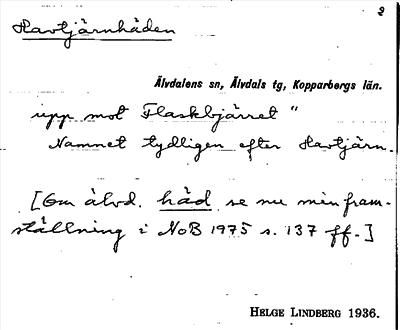 2
Havtjärnhäden
Älvdalens sn, Älvdals tg, Kopparbergs län.
upp mot Flaskbjärret"
Namnet tydligen efter Havtjärn.
[Om älvd. häd se nu min fram-
ställning i NoB 1975 s. 137 ff.]
HELGE LINDBERG 1936.